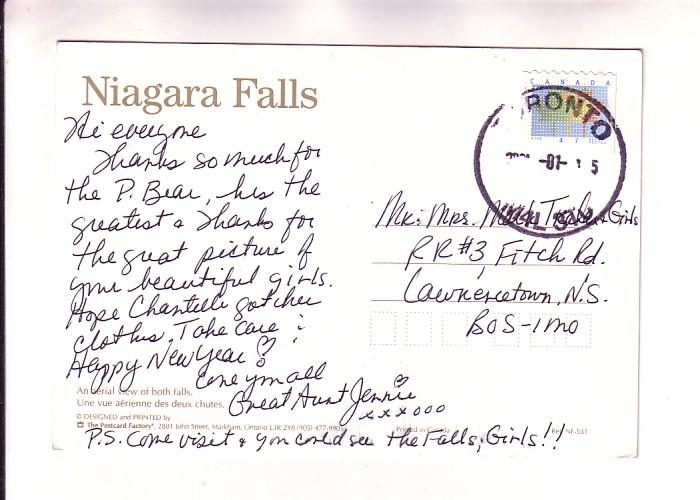 Niagara Falls
Hi everyone
Thanks so much for
the P. Bear, he's the
greatest & Thanks for
the great picture of
your beautiful girls.
Hope Chantelle got her
clothes, Take Care &
Happy New Year!
Love ymall
Great Aunt Jennie
xxxooo
P.S. Come visit & you could see the Falls, Girls!!
An aerial view of both falls.
Une vue aérienne des deux chutes.
© DESIGNED and PRINTED by
The Postcard Factory, 2801 John Street, Markham, Ontario L3R 2Y8 (905) 477-9901
Printed in Canada
Ref. NF-531
CANADA
47
TORONTO
-01- 15
Mr. & Mrs. & Girls
RR #3, Fitch Rd.
Lawrencetown, N.S.
B0S-1M0